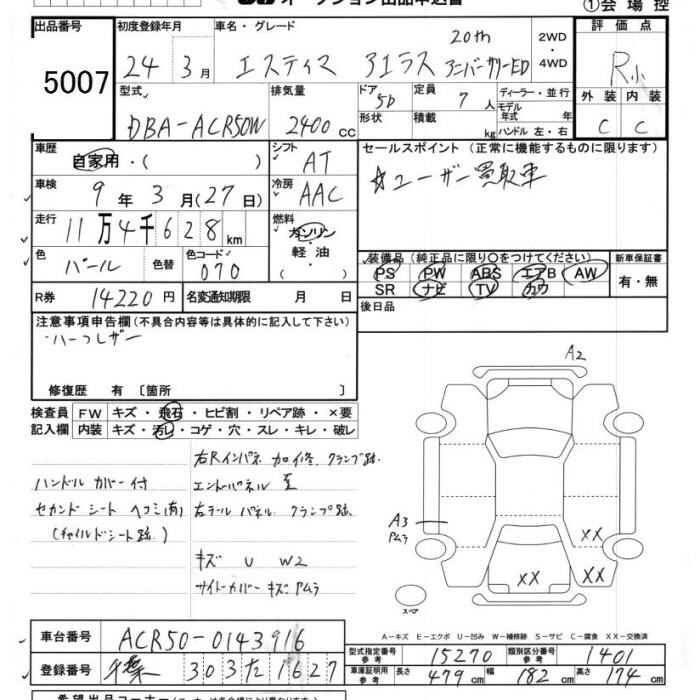 オークション出品申込書
①会場控
出品番号 初度登録年月 車名・グレード 評価点
5007 24年 3月 エスティマ アエラス 20th アニバーサリーED 2WD・4WD R小
型式 排気量 ドア 定員 ディーラー・並行 外装 内装
DBA-ACR50W 2400cc 5D 7人 モデル年式 年 C C
形状 積載 kg ハンドル 左・右
車歴 自家用・( ) シフト AT セールスポイント(正常に機能するものに限ります)
車検 9年 3月(27日) 冷房 AAC ☆ユーザー買取車
走行 11万4千628km 燃料 ガソリン・軽油・
色 パール 色替 色コード 070
装備品(純正品に限り○をつけてください) 新車保証書
PS PW ABS エアB AW 有・無
SR ナビ TV カワ
R券 14220円 名変通知期限 月 日 後日品
注意事項申告欄(不具合内容等は具体的に記入して下さい)
・ハーフレザー
修復歴 有〔箇所 〕
検査員記入欄 FW キズ・飛石・ヒビ割・リペア跡・×要
内装 キズ・汚レ・コゲ・穴・スレ・キレ・破レ
右Rインパネ 加修.クランプ跡.
ハンドル カバー付 エンドパネル 至
セカンド シート ヘコミ(有) 右テール パネル クランプ跡
(チャイルドシート跡)
キズ U W2
サイドカバー キズ.ムラ
A2
A3
ムラ
XX
XX XX
スペア
A-キズ E-エクボ U-凹み W-補修跡 S-サビ C-腐食 XX-交換済
車台番号 ACR50-0143916
登録番号 千葉 303 た 1627
型式指定番号 参考 15270 類別区分番号 参考 1401
車庫証明用 参考 長さ 479cm 幅 182cm 高さ 174cm
希望出品コーナー